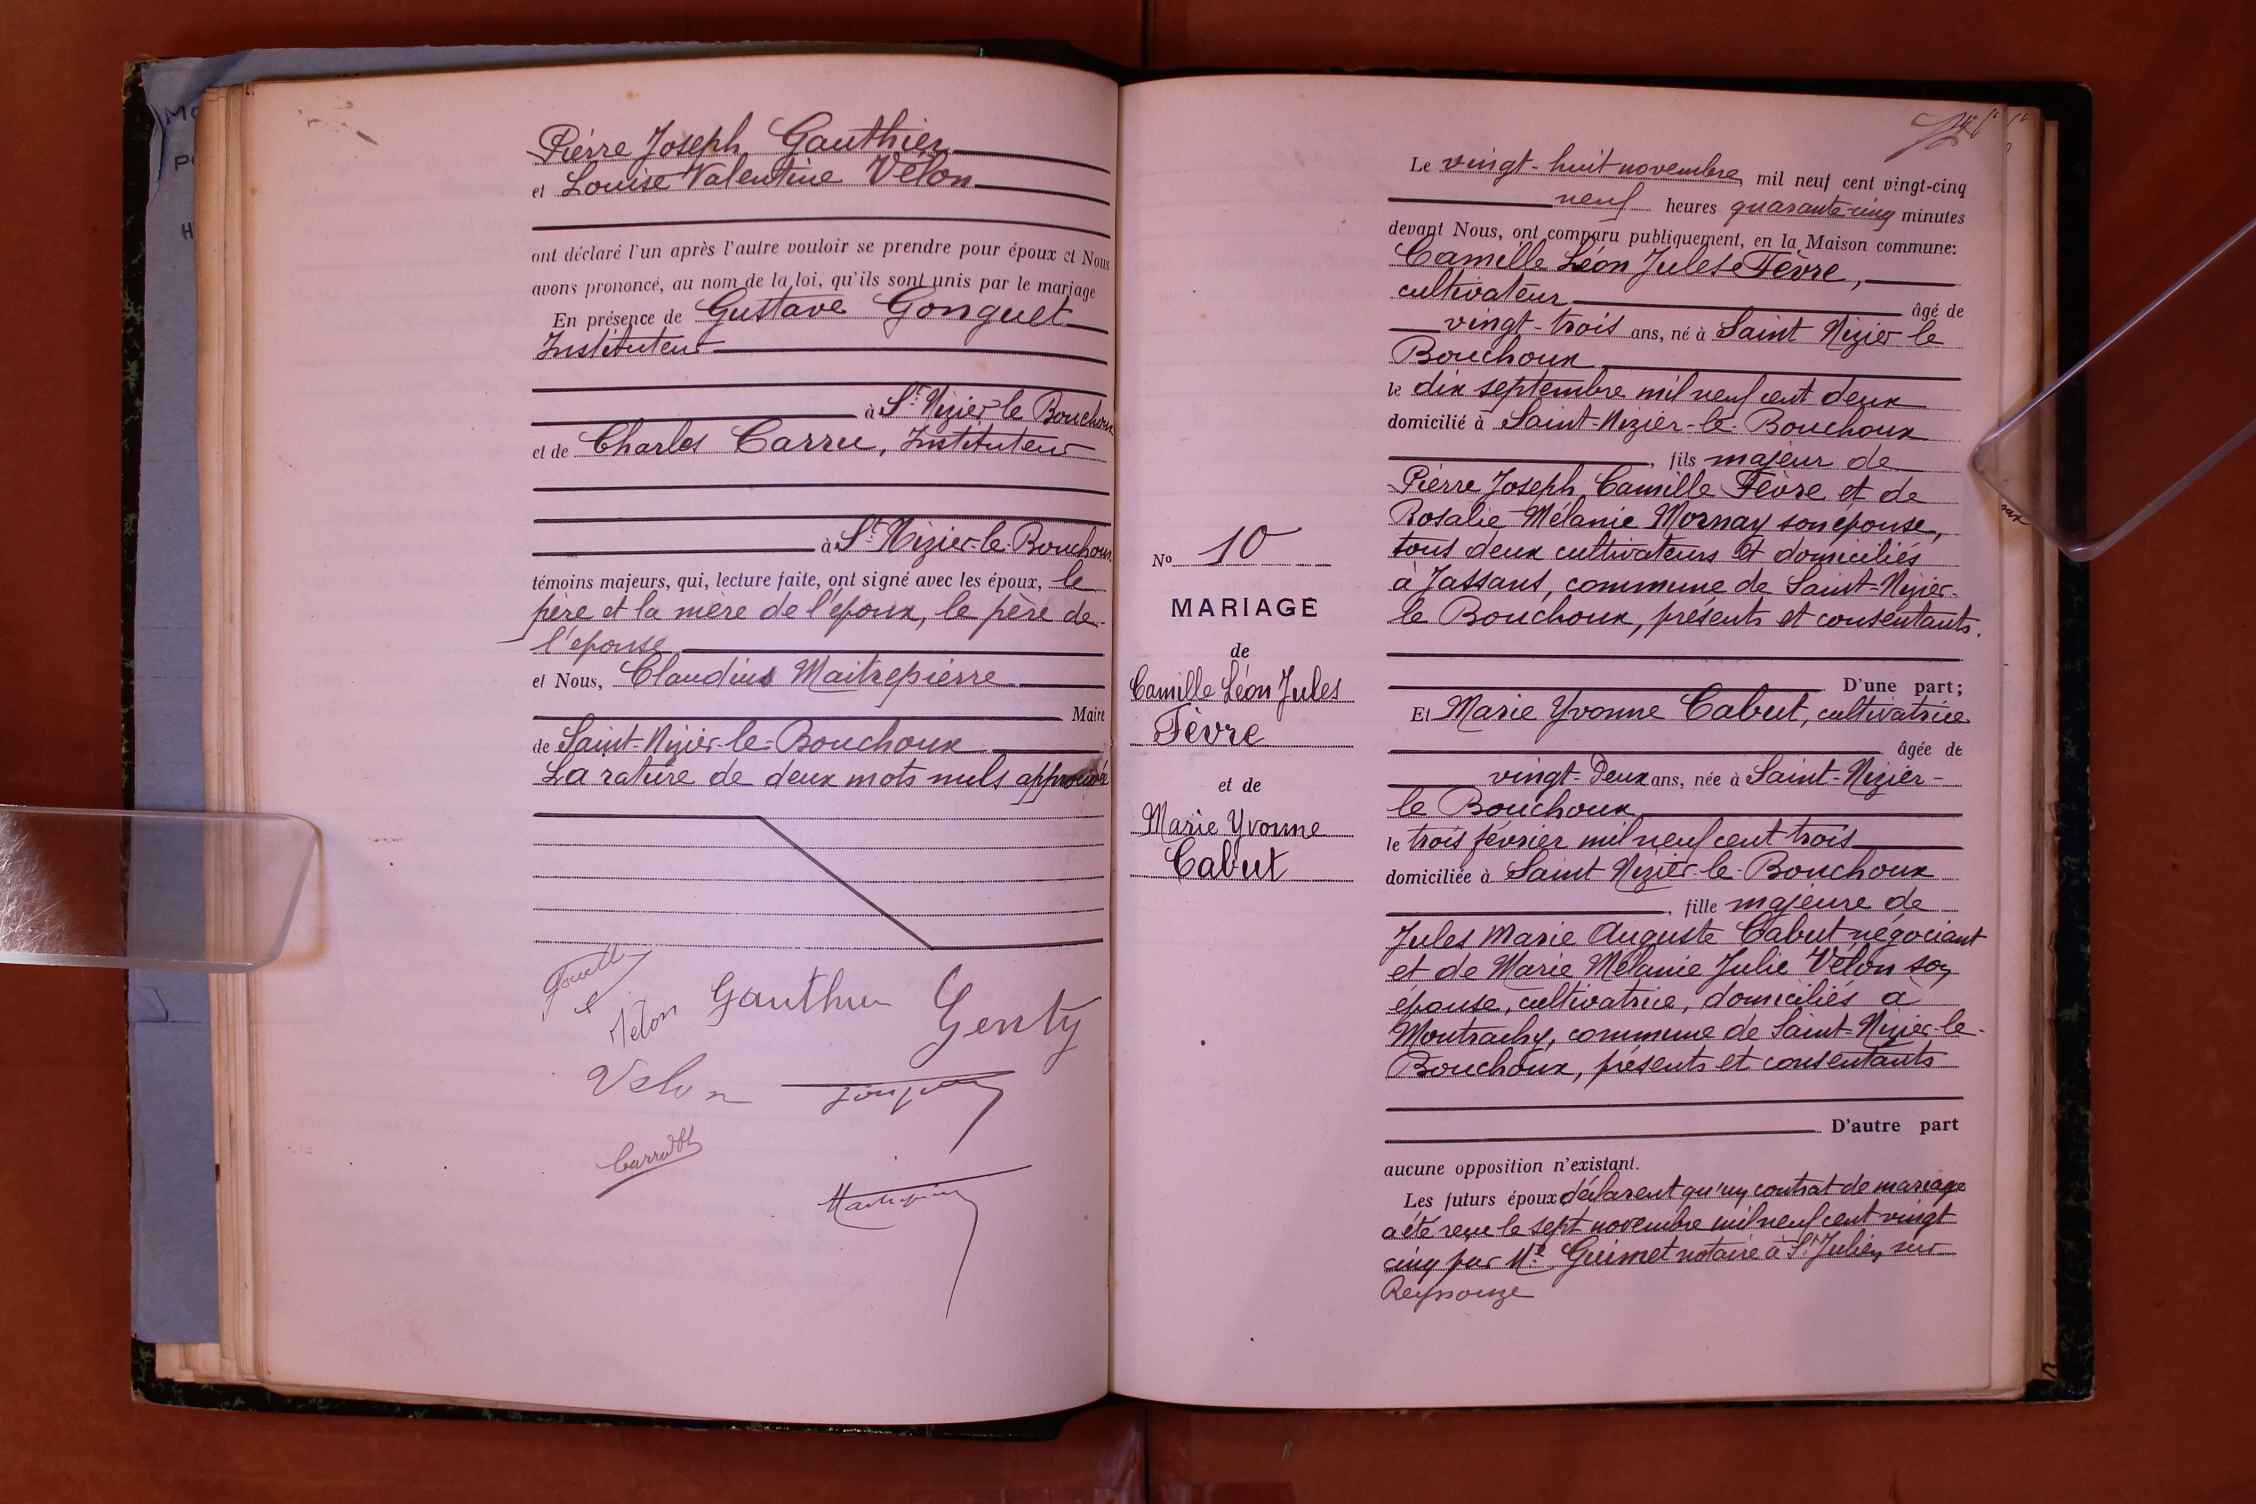 Pierre Joseph Gauthier
et Louise Valentine Vélon
ont déclaré l'un après l'autre vouloir se prendre pour époux et Nous
avons prononcé, au nom de la loi, qu'ils sont unis par le mariage
En présence de Gustave Gonguet
Instituteur
à St. Nizier-le Bouchoux
et de Charles Carru, Instituteur
à St Nizier-le-Bouchoux
témoins majeurs, qui, lecture faite, ont signé avec les époux, le
père et la mère de l'époux, le père de
l'épouse
et Nous, Claudius Maitrepierre
Maire
de Saint-Nizier-le-Bouchoux
La rature de deux mots nuls approuvée
Vélon Gauthier Genty
Velon
No 10
MARIAGE
de
Camille Léon Jules
Fèvre
et de
Marie Yvonne
Cabut
Le vingt-huit novembre, mil neuf cent vingt-cinq
neuf heures quarante-cinq minutes
devant Nous, ont comparu publiquement, en la Maison commune:
Camille Léon Jules Fèvre,
cultivateur âgé de
vingt-trois ans, né à Saint Nizier le
Bouchoux
le dix septembre mil neuf cent deux
domicilié à Saint-Nizier-le-Bouchoux
, fils majeur de
Pierre Joseph Camille Fèvre et de
Rosalie Mélanie Mornay son épouse,
tous deux cultivateurs et domiciliés
à Jassans, commune de Saint-Nizier-
le Bouchoux, présents et consentants.
D'une part;
Et Marie Yvonne Cabut, cultivatrice
âgée de
vingt-Deux ans, née à Saint-Nizier-
le Bouchoux
le trois février mil neuf cent trois
domiciliée à Saint Nizier-le-Bouchoux
, fille majeure de
Jules Marie Auguste Cabut négociant
et de Marie Mélanie Julie Vélon son
épouse, cultivatrice, domiciliés à
Montrachy, commune de Saint-Nizier-le-
Bouchoux, présents et consentants
D'autre part
aucune opposition n'existant.
Les futurs époux déclarent qu'un contrat de mariage
a été reçu le sept novembre mil neuf cent vingt
cinq par Me Guimet notaire à St Julien sur
Reyssouze